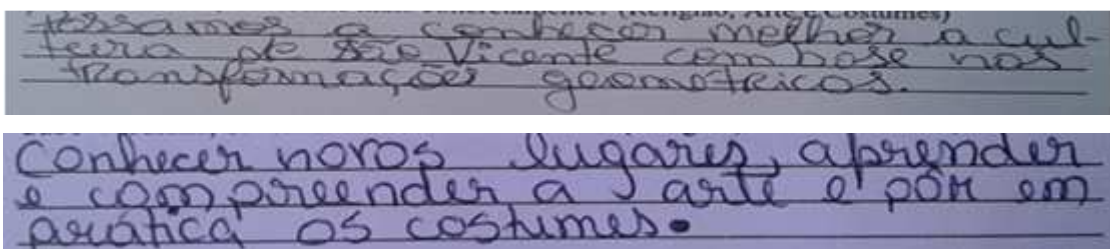 (Religião, Arte e Costumes)
Possamos a conhecer melhor a cul-
tura de São Vicente com base nas
transformações geometricos.
Conhecer novos lugares, aprender
e compreender a arte e pôr em
prática os costumes.